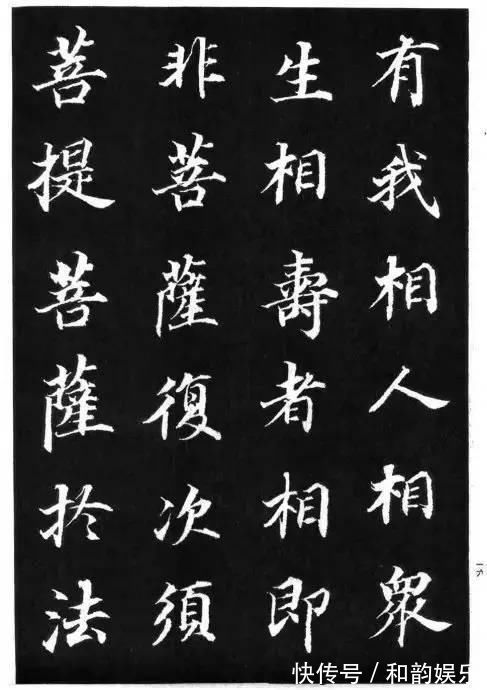 有我相人相衆
生相壽者相即
非菩薩復次須
菩提菩薩於法
一六
快传号/和韵娱乐